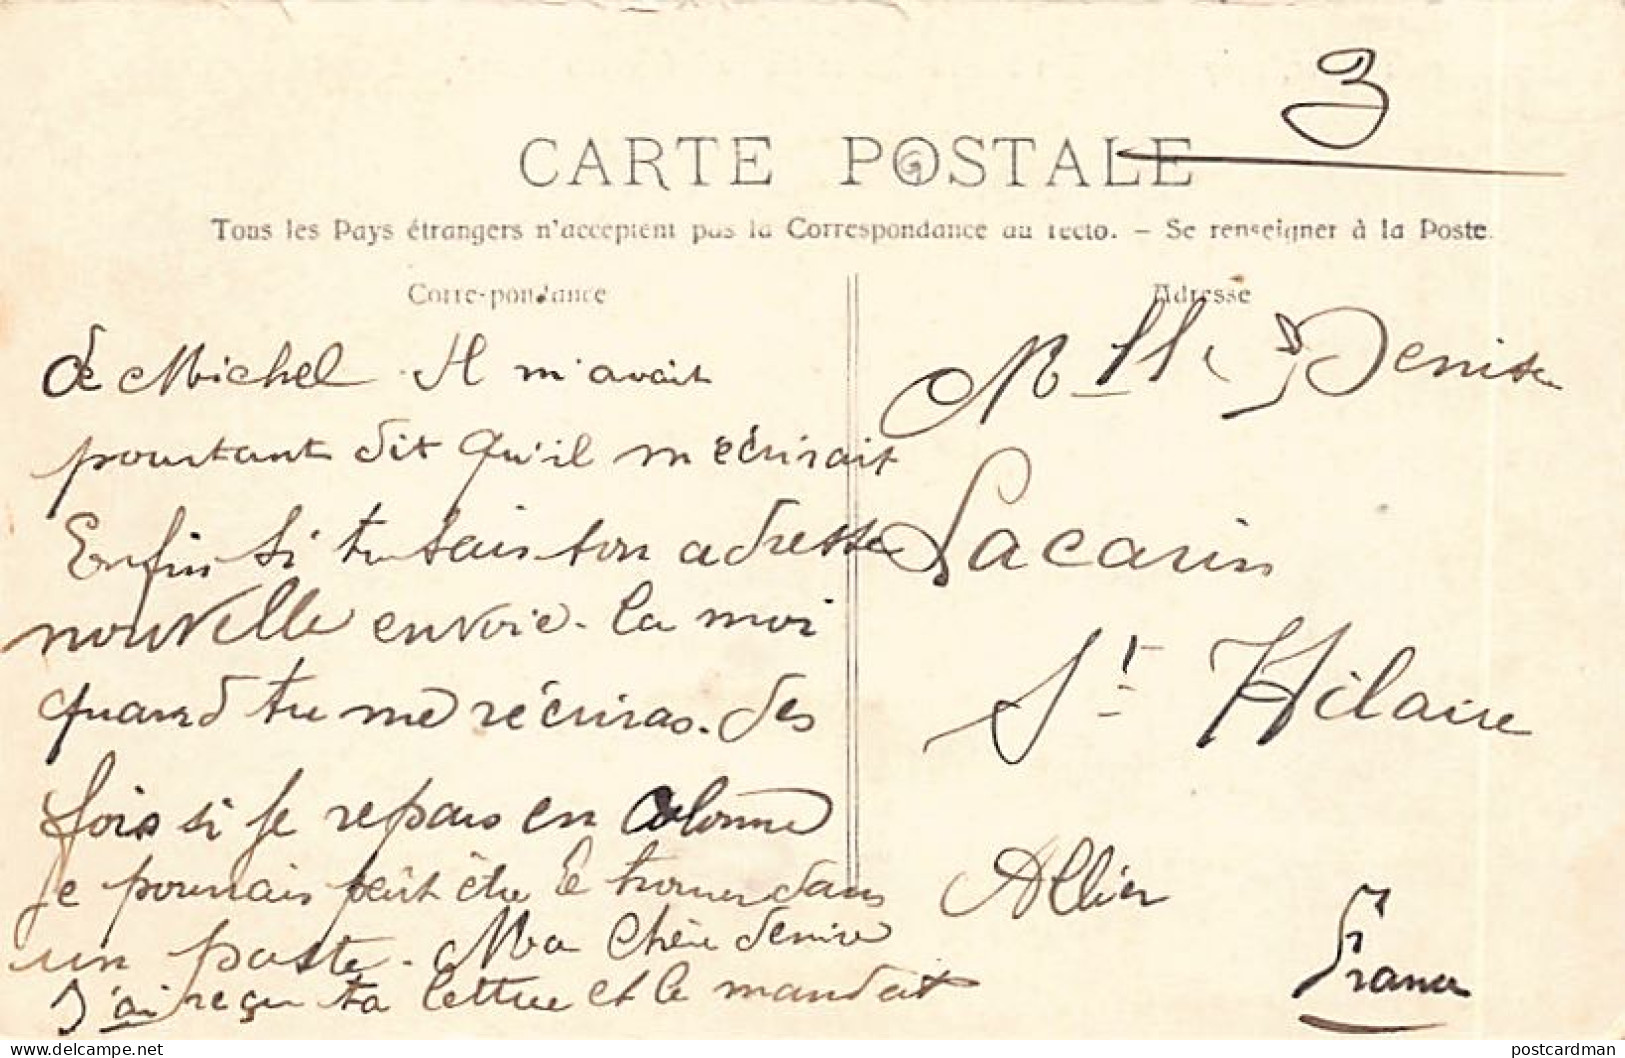 3
CARTE POSTALE
Tous les Pays étrangers n'acceptent pas la Correspondance au recto. – Se renseigner à la Poste.
Correspondance
de Michel. Il m'avait
pourtant dit qu'il m'écrirait
Enfin si tu sais son adresse
nouvelle envoie-la moi
quand tu me récriras. des
fois si je repars en colonne
je pourrais peut être le trouver dans
un poste. Ma chère denise
J'ai reçu ta lettre et le mandat
Adresse
Mlle Denise
Lacarin
St Hilaire
Allier
France
postcardman